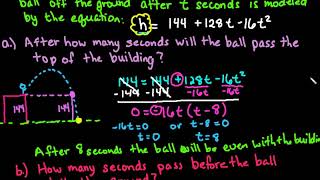 ball off the ground after t seconds is modeled
by the equation: h = 144 + 128t - 16t²
a.) After how many seconds will the ball pass the
top of the building?
144 = 144 + 128t - 16t²
-144 -144 -16t -16t
0 = -16t(t-8)
-16t=0 or t-8=0
t=0 t=8
144 144
After 8 seconds the ball will be even with the building
b.) How many seconds pass before the ball